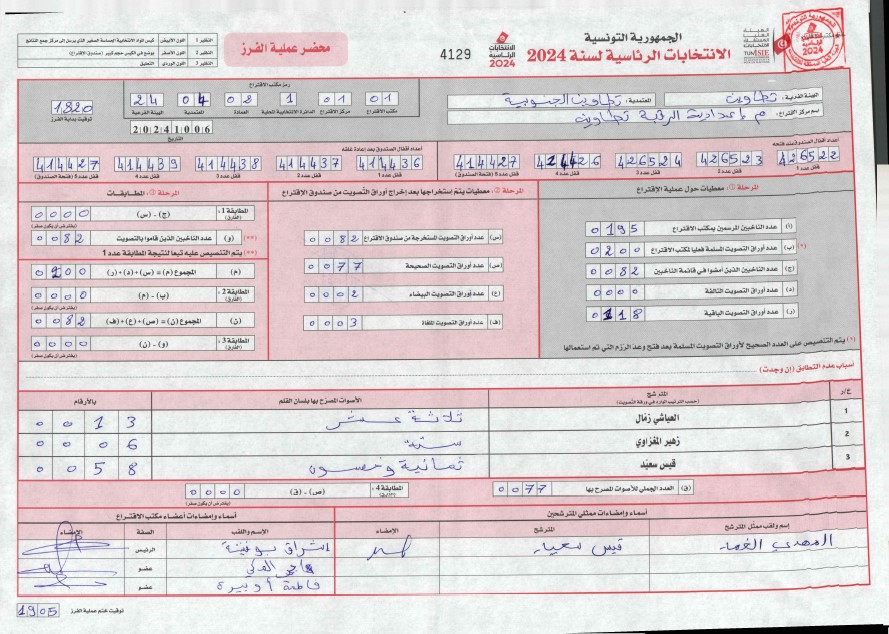 الجمهورية التونسية
الانتخابات الرئاسية لسنة 2024
الانتخابات الرئاسية 2024
4129
محضر عملية الفرز
النظير 1 اللون الأبيض
النظير 2 اللون الأصفر يوضع في الكيس حجم كبير (صندوق الاقتراع)
النظير 3 اللون الوردي التعليق
الهيئة الفرعية: تطاوين المعتمدية: تطاوين الجنوبية
إسم مركز الاقتراع: م إعدادية الرقبة تطاوين
رمز مكتب الاقتراع
01 01 1 02 04 24
مكتب الاقتراع مركز الاقتراع الدائرة الانتخابية المحلية العمادة المعتمدية الهيئة الفرعية
التاريخ
20241006
1820
توقيت بداية الفرز
أعداد أقفال الصندوق عند فتحه
426522 426523 426524 424426 414427
قفل عدد 1 قفل عدد 2 قفل عدد 3 قفل عدد 4 قفل عدد 5 (فتحة الصندوق)
أعداد أقفال الصندوق بعد إعادة غلقه
414436 414437 414438 414439 414427
قفل عدد 1 قفل عدد 2 قفل عدد 3 قفل عدد 4 قفل عدد 5 (فتحة الصندوق)
المرحلة 1: معطيات حول عملية الاقتراع
(أ) عدد الناخبين المرسمين بمكتب الاقتراع 0195
(ب) عدد أوراق التصويت المسلمة فعليا لمكتب الاقتراع (*) 0200
(ج) عدد الناخبين الذين أمضوا في قائمة الناخبين 0082
(د) عدد أوراق التصويت التالفة 0000
(ر) عدد أوراق التصويت الباقية 0118
(*) يتم التنصيص على العدد الصحيح لأوراق التصويت المسلمة بعد فتح وعد الرزم التي تم استعمالها
المرحلة 2: معطيات يتم إستخراجها بعد إخراج أوراق التصويت من صندوق الاقتراع
(س) عدد أوراق التصويت المستخرجة من صندوق الاقتراع 0082
(ص) عدد أوراق التصويت الصحيحة 0077
(ع) عدد أوراق التصويت البيضاء 0002
(ف) عدد أوراق التصويت الملغاة 0003
المرحلة 3: المطابقات
المطابقة 1: (الفارق) (ج) - (س) 0000
(يفترض أن يكون صفر)
(**) (و) عدد الناخبين الذين قاموا بالتصويت 0082
(**) يتم التنصيص عليه تبعا لنتيجة المطابقة عدد 1
(م) المجموع (م) = (س) + (د) + (ر) 0200
المطابقة 2: (الفارق) (ب) - (م) 0000
(يفترض أن يكون صفر)
(ن) المجموع (ن) = (ص) + (ع) + (ف) 0082
المطابقة 3: (الفارق) (و) - (ن) 0000
(يفترض أن يكون صفر)
أسباب عدم التطابق (إن وجدت)
ع/د المترشح الأصوات المصرح بها بلسان القلم بالأرقام
(حسب الترتيب الوارد في ورقة التصويت)
1 العياشي زمّال ثلاثة عشر 0013
2 زهير المغزاوي ستة 0006
3 قيس سعيّد ثمانية وخمسون 0058
(ق) العدد الجملي للأصوات المصرح بها 0077
المطابقة 4: (الفارق) (ص) - (ق) 0000
(يفترض أن يكون صفر)
أسماء وإمضاءات ممثلي المترشحين
إسم ولقب ممثل المترشح المترشح الإمضاء
المهدي قيس سعيد
أسماء وإمضاءات أعضاء مكتب الاقتراع
الإسم واللقب الصفة الإمضاء
الرئيس
عضو
فاطمة عضو
توقيت ختم عملية الفرز 1905